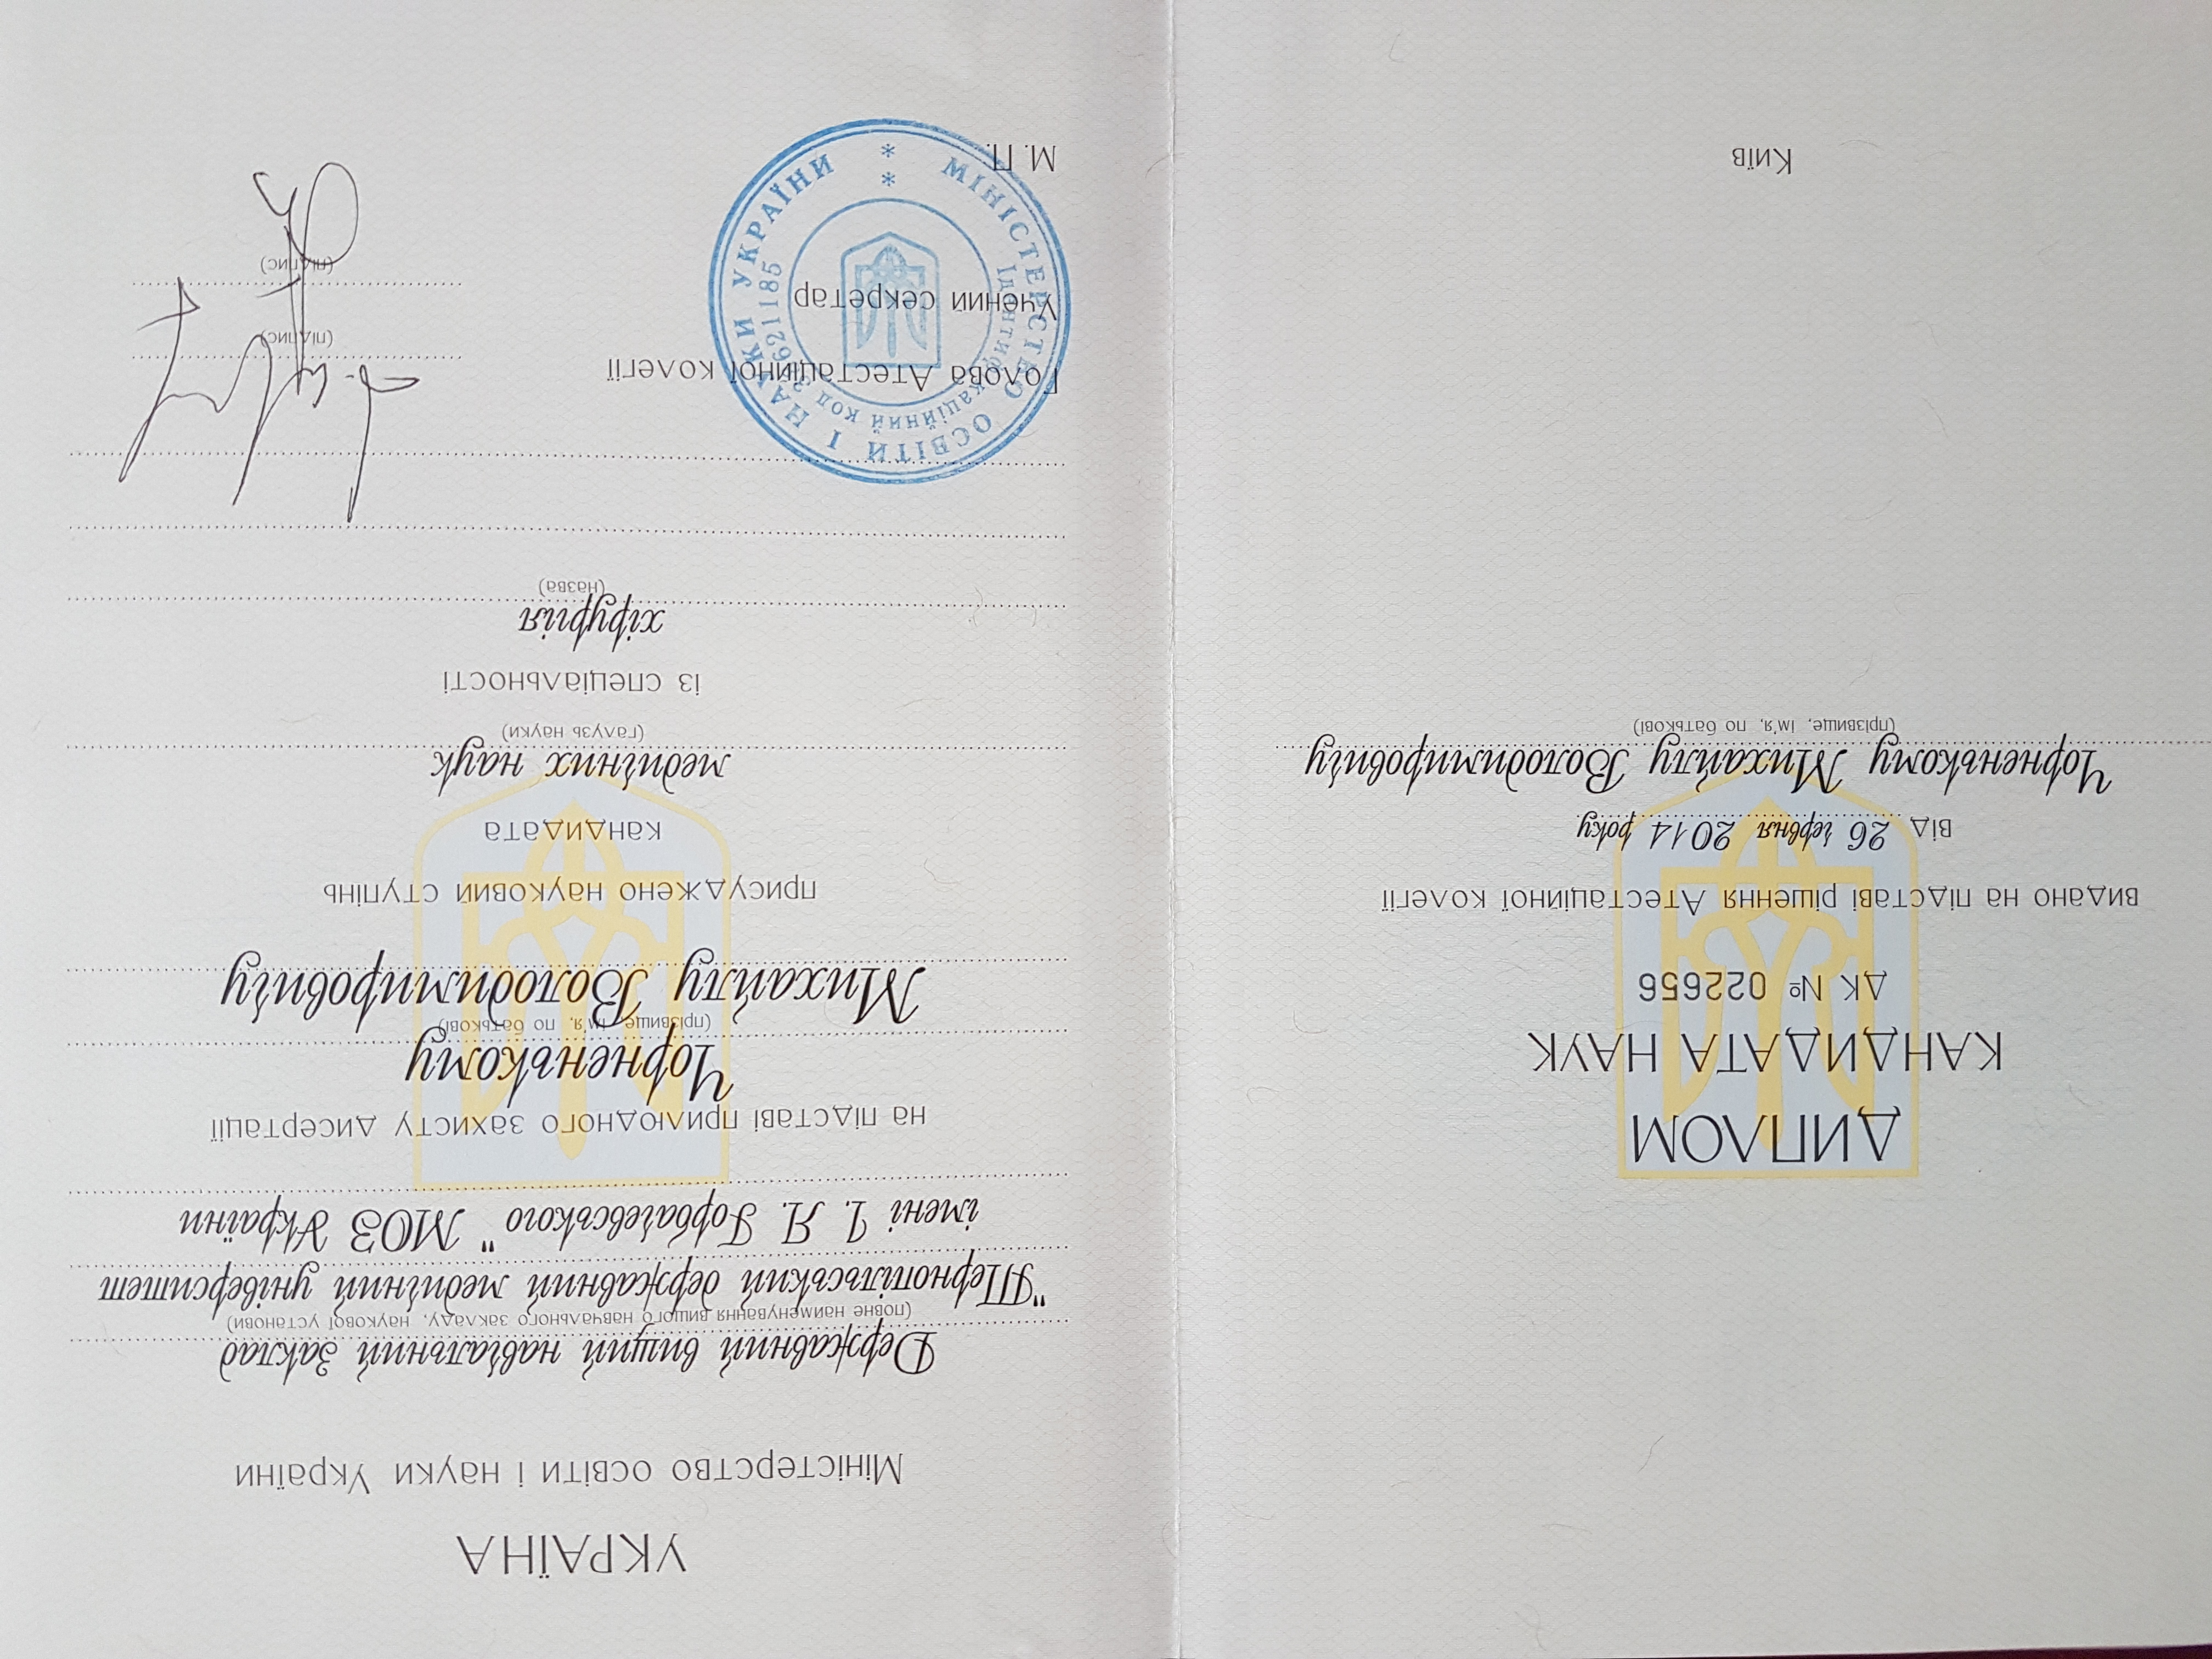 ДИПЛОМ
КАНДИДАТА НАУК
ДК № 022656
видано на підставі рішення Атестаційної колегії
від 26 червня 2014 року
Чорненькому Михайлу Володимировичу
(прізвище, ім'я, по батькові)
Київ
УКРАЇНА
Міністерство освіти і науки України
Державний вищий навчальний заклад
(повне найменування вищого навчального закладу, наукової установи)
"Тернопільський державний медичний університет
імені І. Я. Горбачевського" МОЗ України
на підставі прилюдного захисту дисертації
Чорненькому
(прізвище, ім'я, по батькові)
Михайлу Володимировичу
присуджено науковий ступінь
кандидата
медичних наук
(галузь науки)
із спеціальності
хірургія
(назва)
Голова Атестаційної колегії
(підпис)
Учений секретар
(підпис)
М. П.
МІНІСТЕРСТВО ОСВІТИ І НАУКИ УКРАЇНИ
Ідентифікаційний код 38621185